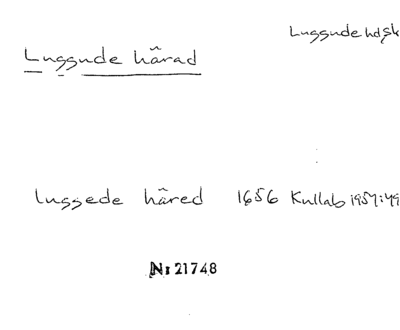 Luggude hd Sk
Luggude härad
luggede häred 1656 Kullab 1957:49
N: 21748